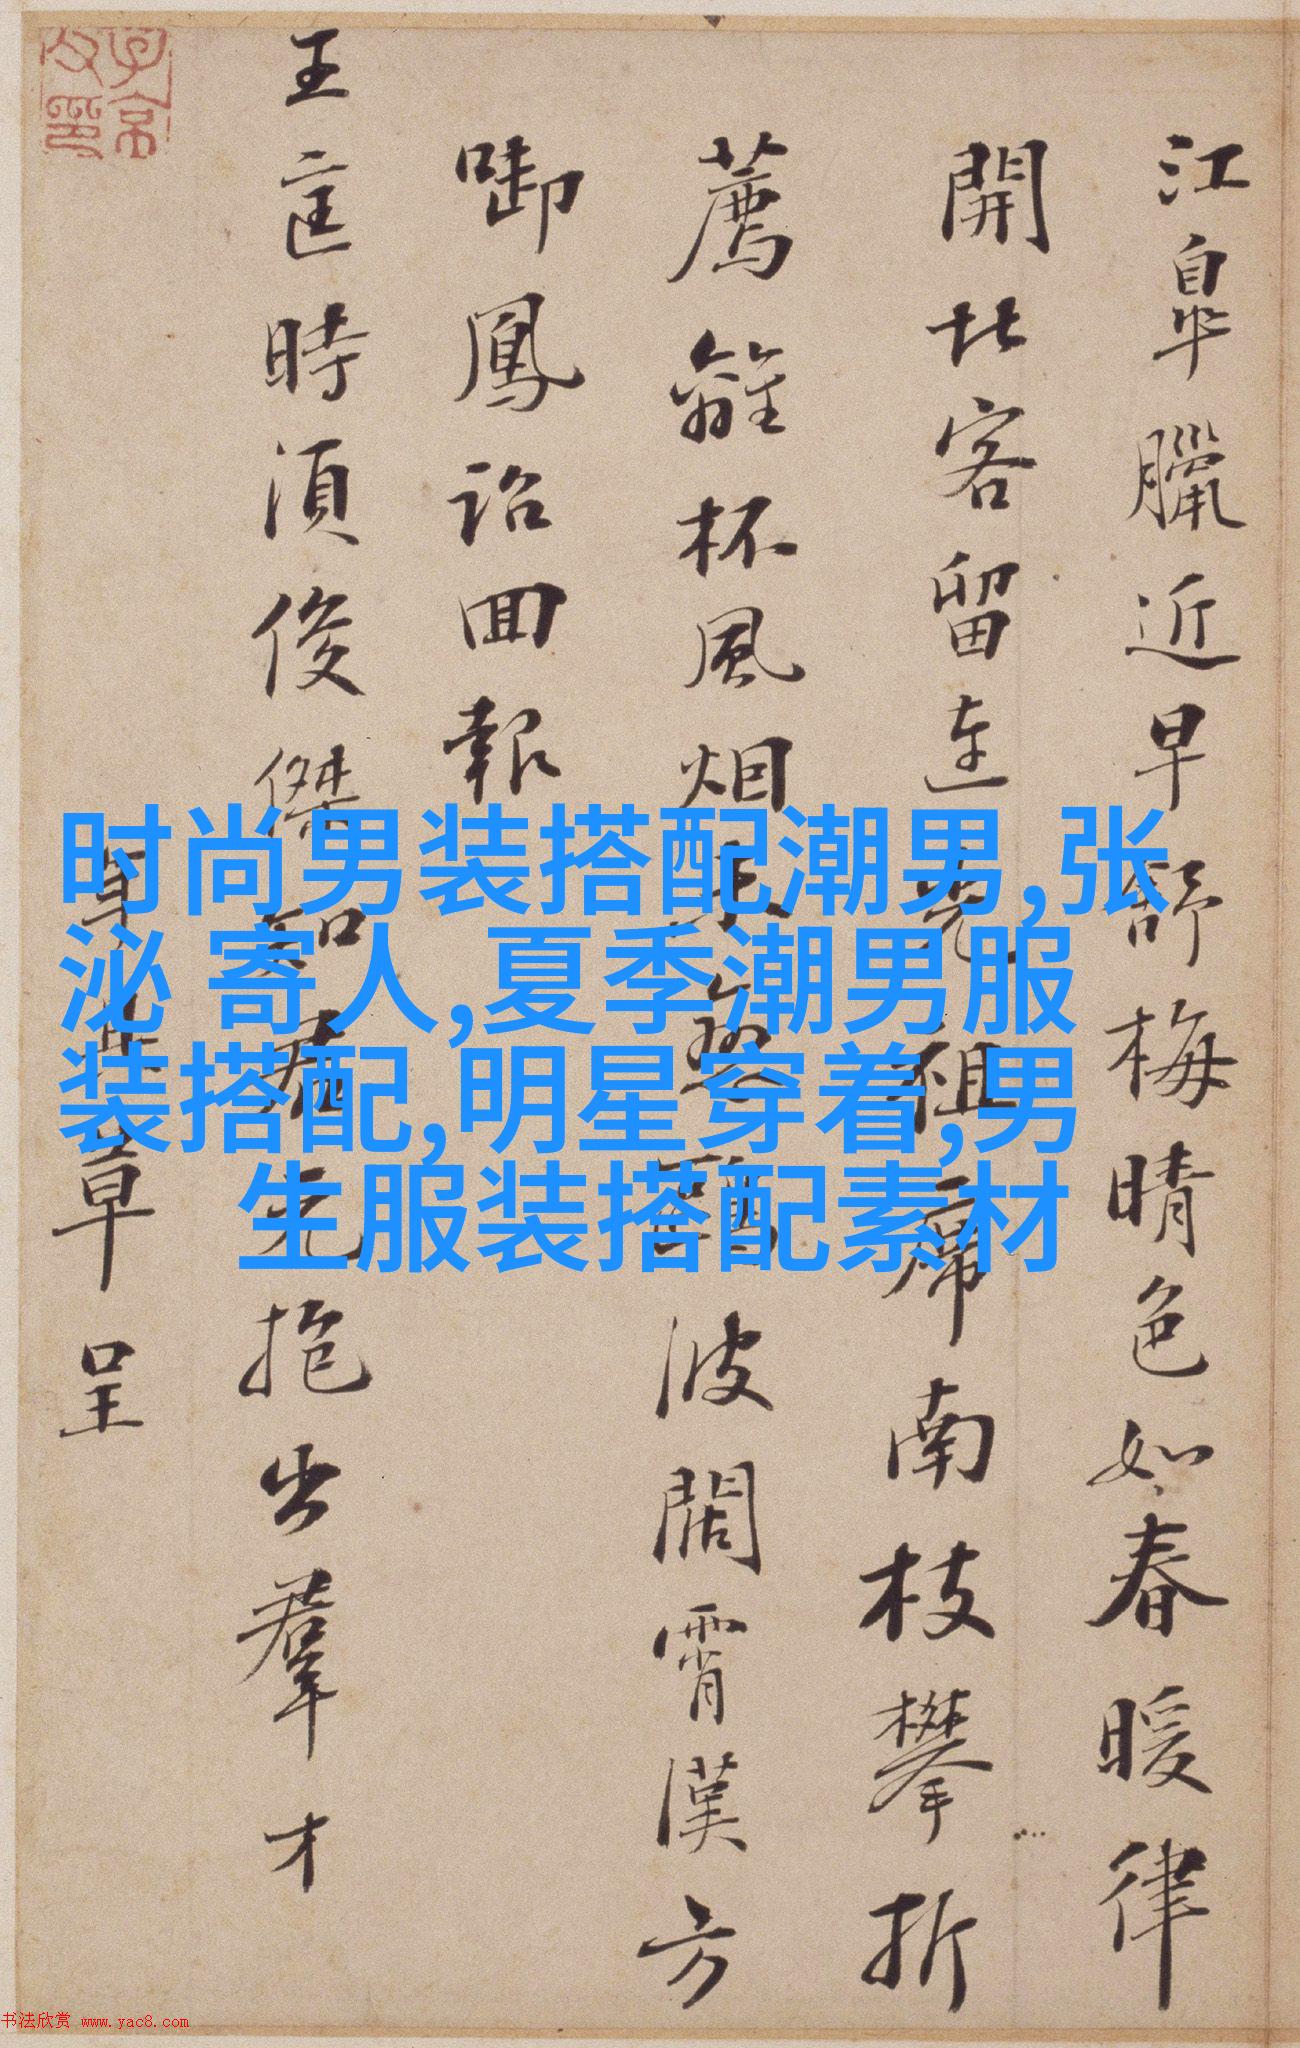 江皐臘近早舒梅晴色如春暖律
開北客留連祖席南枝攀折
薦離杯風烟波闊霄漢方
啣鳳詔回報
王匡時須俊傑知君先抱出羣才
草呈
子京父印
时尚男装搭配潮男,张
泌 寄人,夏季潮男服
装搭配,明星穿着,男
生服装搭配素材
书法欣赏 www.yac8.com